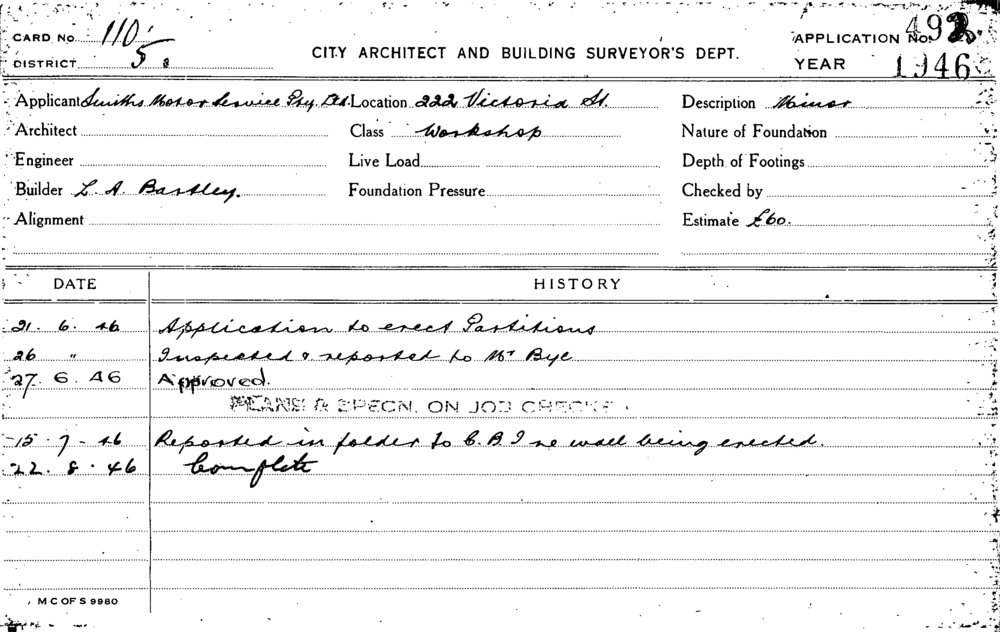 CARD No 110
DISTRICT 5.
CITY ARCHITECT AND BUILDING SURVEYOR'S DEPT.
APPLICATION No. 492
YEAR 1946
Applicant Smiths Motor Service Pty. Ltd. Location 222 Victoria St. Description Minor
Architect Class Workshop Nature of Foundation
Engineer Live Load Depth of Footings
Builder L. A. Bartley. Foundation Pressure Checked by
Alignment Estimate £60.
DATE HISTORY
21. 6. 46 Application to erect Partitions
26 " Inspected & reported to Mr Bye
27. 6. 46 Approved.
PLANS & SPECN. ON JOB CHECKE
15 - 7 - 46 Reported in folder to C. B. I re wall being erected.
22. 8. 46 Complete
M C OF S 9980